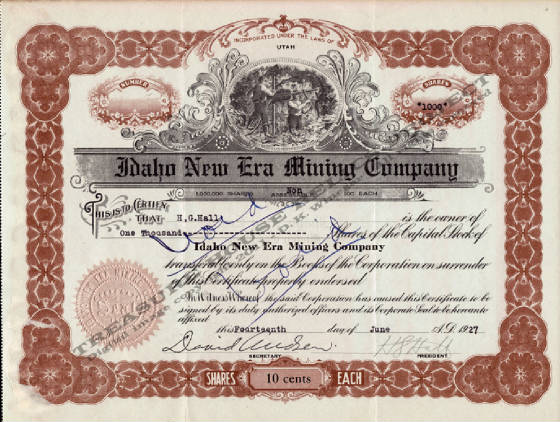 INCORPORATED UNDER THE LAWS OF
UTAH
NUMBER
SHARES
*1000*
Idaho New Era Mining Company
1,000,000 SHARES
Non
10C EACH
THIS IS TO CERTIFY THAT H.G.Hall is the owner of
One Thousand Shares of the Capital Stock of
Idaho New Era Mining Company
transferable only on the Books of the Corporation on surrender
of this Certificate properly endorsed
In Witness Whereof the said Corporation has caused this Certificate to be
signed by its duly authorized officers and its Corporate Seal to be hereunto
affixed
this Fourteenth day of June A.D. 1927
SECRETARY
PRESIDENT
SHARES 10 cents EACH